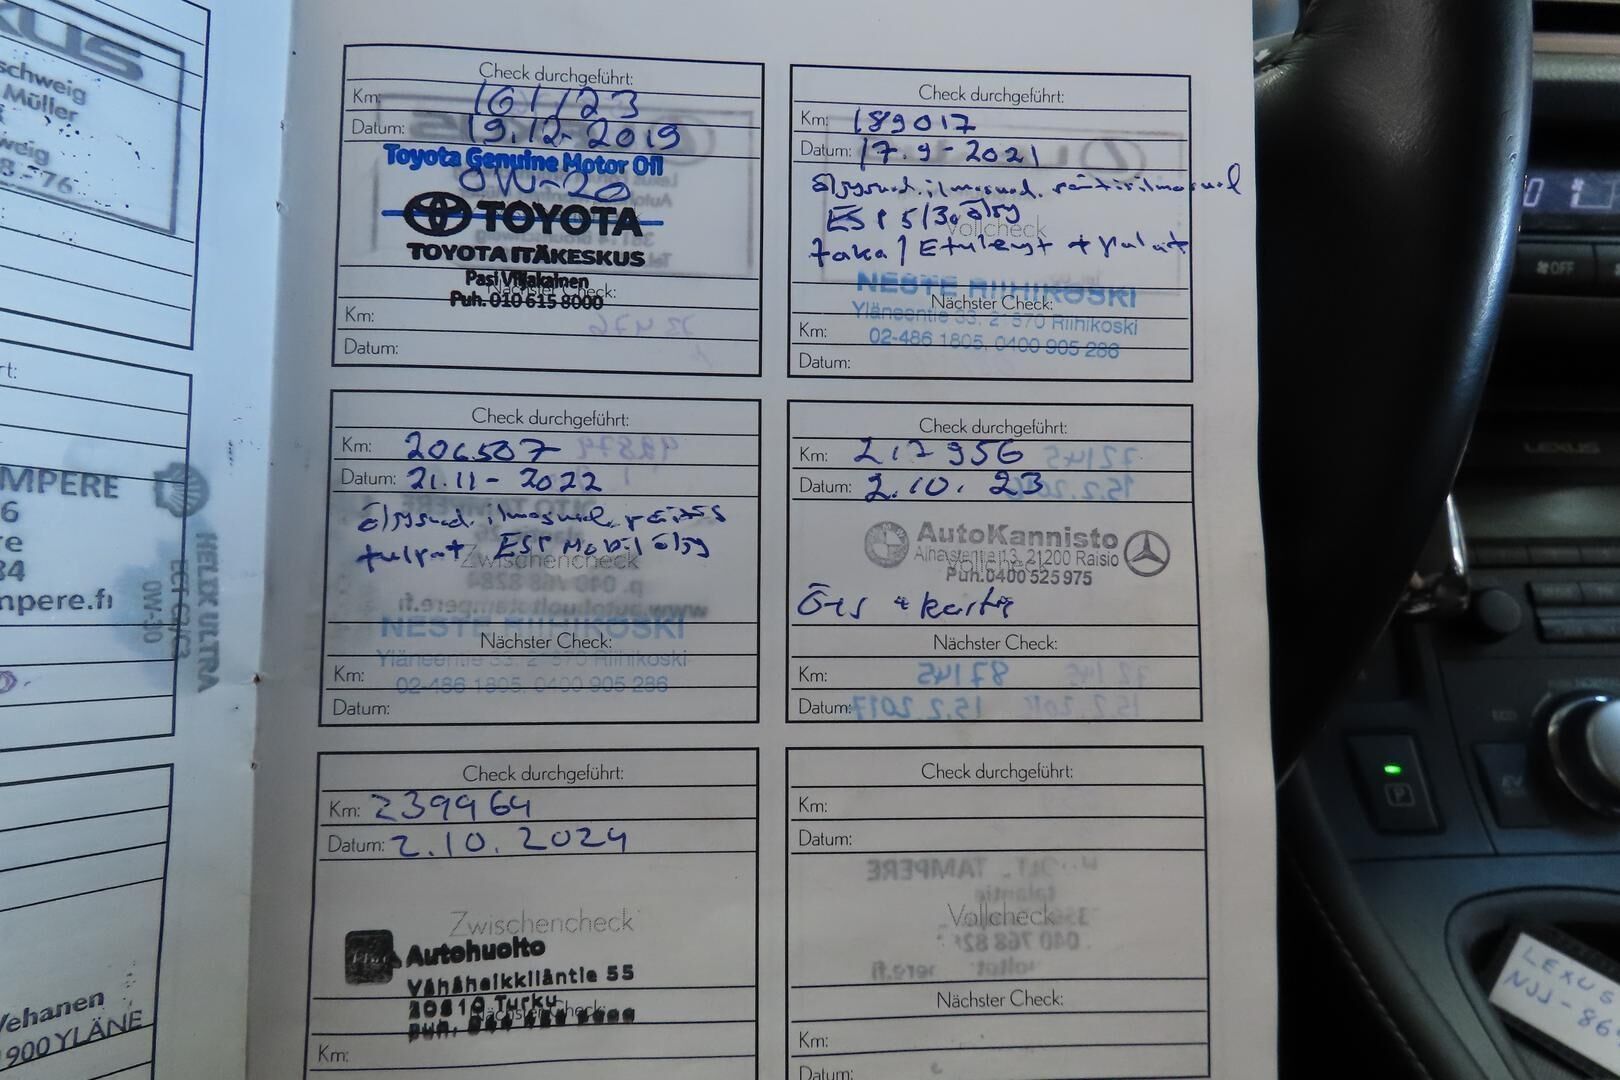 XUS
schweig
Müller
weig
8-76
MPERE
6
re
84
mpere.fi
HELIX ULTRA
ECT C2/C3
0W-30
Vehanen
900 YLÄNE
Check durchgeführt:
Km: 161123
Datum: 19.12-2019
Toyota Genuine Motor Oil
0W-20
TOYOTA
TOYOTA ITÄKESKUS
Pasi Viljakainen
Puh. 010 615 8000
Nächster Check:
Km:
Datum:
Check durchgeführt:
Km: 189017
Datum: 17.9-2021
öljysuod. ilmasuod. raitisilmasuod
ESP 5/30 öljy
taka/Etulevyt + palat
Vollcheck
NESTE RIIHIKOSKI
Nächster Check:
Yläneentie 33, 21570 Riihikoski
Km: 02-486 1805, 0400 905 286
Datum:
Check durchgeführt:
Km: 206507
Datum: 21.11-2022
öljysuod. ilmasuod.
tulpat ESP Mobil öljy
Zwischencheck
NESTE RIIHIKOSKI
Nächster Check:
Yläneentie 33, 21570 Riihikoski
Km: 02-486 1805, 0400 905 286
Datum:
Check durchgeführt:
Km: 217956
Datum: 2.10.23
AutoKannisto
Alhaistentie 13, 21200 Raisio
Vollcheck
Puh.0400 525975
Nächster Check:
Km:
Datum:
Check durchgeführt:
Km: 239964
Datum: 2.10.2024
Zwischencheck
Autohuolto
Vähäheikkiläntie 55
20810 Turku
Nächster Check:
Km:
Check durchgeführt:
Km:
Datum:
Vollcheck
Nächster Check:
Km:
Datum:
OFF
LEXUS
P
LEXUS
NJJ-86